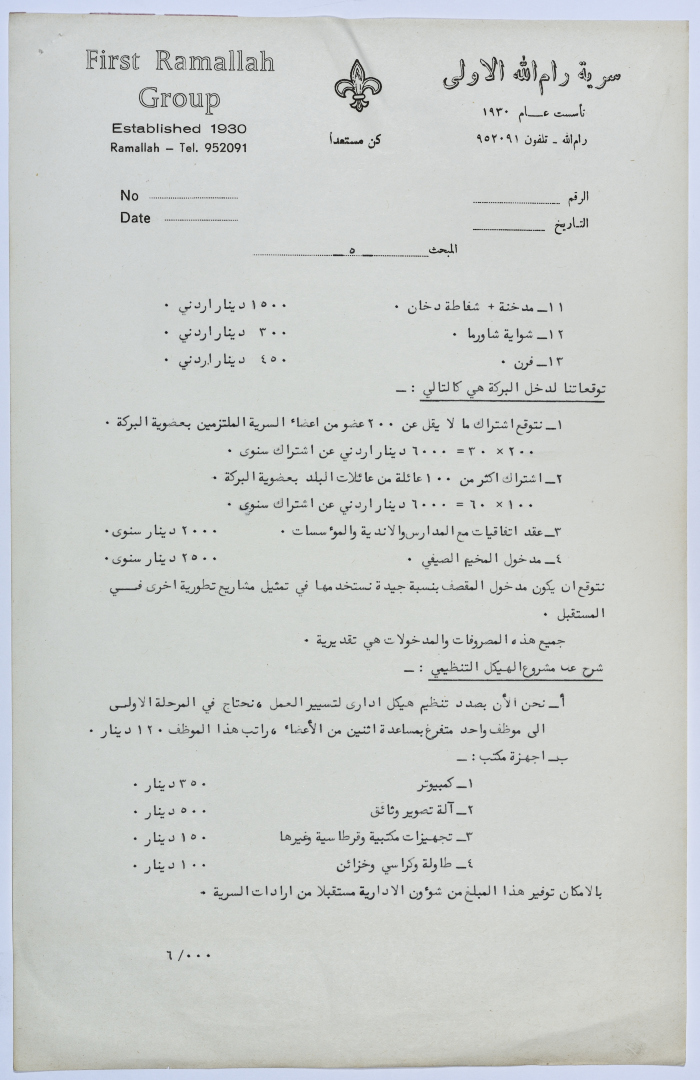 First Ramallah
Group
Established 1930
Ramallah – Tel. 952091
كن مستعداً
سرية رام الله الاولى
تأسست عــام ١٩٣٠
رام الله ـ تلفون ٩٥٢٠٩١
No
Date
الرقم
التـاريخ
المبحث ـ ٥ ـ
١١ـ مدخنة + شفاطة دخان ٠ ١٥٠٠ دينار اردني ٠
١٢ـ شواية شاورما ٠ ٣٠٠ دينار اردني ٠
١٣ـ فرن ٠ ٤٥٠ دينار اردني ٠
توقعاتنا لدخل البركة هي كالتالي : ـ
١ـ نتوقع اشتراك ما لا يقل عن ٢٠٠ عضو من اعضاء السرية الملتزمين بعضوية البركة ٠
٢٠٠ × ٣٠ = ٦٠٠٠ دينار اردني عن اشتراك سنوى ٠
٢ـ اشتراك اكثر من ١٠٠ عائلة من عائلات البلد بعضوية البركة ٠
١٠٠ × ٦٠ = ٦٠٠٠ دينار اردني عن اشتراك سنوى ٠
٣ـ عقد اتفاقيات مع المدارس والاندية والمؤسسات ٠ ٢٠٠٠ دينار سنوى ٠
٤ـ مدخول المخيم الصيفي ٠ ٢٥٠٠ دينار سنوى ٠
نتوقع ان يكون مدخول المقصف بنسبة جيدة نستخدمها في تمثيل مشاريع تطورية اخرى فـــي
المستقبل ٠
جميع هذه المصروفات والمدخولات هي تقديرية ٠
شرح عن مشروع الهيكل التنظيمي : ـ
أـ نحن الأن بصدد تنظيم هيكل ادارى لتسيير العمل ، نحتاج في المرحلة الاولــى
الى موظف واحد متفرغ بمساعدة اثنين من الأعضاء ، راتب هذا الموظف ١٢٠ دينار ٠
بـ اجهزة مكتب : ـ
١ـ كمبيوتر ٣٥٠ دينار ٠
٢ـ آلة تصوير وثائق ٥٠٠ دينار ٠
٣ـ تجهيزات مكتبية وقرطاسية وغيرها ١٥٠ دينار ٠
٤ـ طاولة وكراسي وخزائن ١٠٠ دينار ٠
بالامكان توفير هذا المبلغ من شؤون الادارية مستقبلا من ارادات السرية ٠
٦/٠٠٠